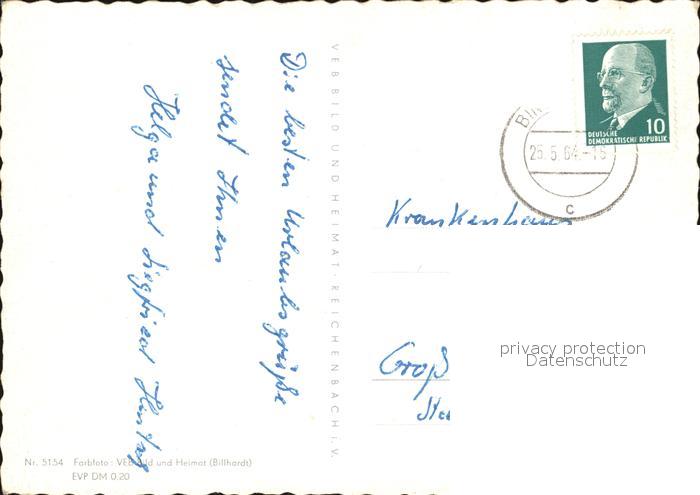 Die besten Urlaubsgrüße
sendet Ihnen
Helga und Siegfried
VEB BILD UND HEIMAT · REICHENBACH i. V.
DEUTSCHE
DEMOKRATISCHE REPUBLIK
10
25.5.64.-18
c
Krankenhaus
privacy protection
Datenschutz
Groß
Nr. 5154 Farbfoto: VEB Bild und Heimat (Billhardt)
EVP DM 0.20